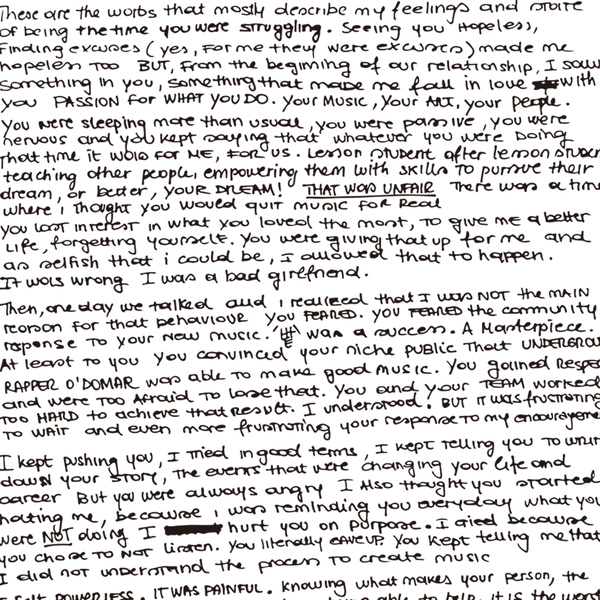 These are the words that mostly describe my feelings and state
of being the time you were struggling. Seeing you Hopeless,
Finding excuses (yes, for me they were excuses) made me
hopeless too BUT, from the beginning of our relationship, I saw
something in you, something that made me fall in love with
you PASSION for WHAT YOU DO. Your MUSIC, YOUR ART, your people.
You were sleeping more than usual, you were passive, you were
nervous and you kept saying that whatever you were Doing
that time it was FOR ME, FOR US. Lesson student after lesson student
teaching other people, empowering them with skills to pursue their
dream, or better, YOUR DREAM! THAT WAS UNFAIR There was a time
where i thought you would quit music for Real
you lost interest in what you loved the most, to give me a better
Life, forgetting yourself. You were giving that up for me and
as selfish that i could be, I allowed that to happen.
It was wrong I was a bad girlfriend.
Then, one day we talked and i realized that I was NOT the MAIN
reason for that behaviour you FEARED. you FEARED the community
response to your New music. was a success. A Masterpiece.
At least to you you convinced your niche public that UNDERGROU
RAPPER O'DOMAR was able to make good music. You gained Respe
and were too Afraid to lose that. You and your TEAM worked
too HARD to achieve that Result. I understood. BUT it was frustrating
to WAIT and even more frustrating your response to my encourageme
I kept pushing you, I tried in good terms, I kept telling you to write
down your STORY, The events that were changing your life and
career But you were always angry I Also thought you started
hating me, because i was reminding you everyday what you
were NOT doing I hurt you on purpose. I cried because
you chose to NOT listen. You literally GAVE UP. You kept telling me that
I did not understand the process to create music
I felt POWERLESS. IT WAS PAINFUL. Knowing what makes your person, the
able to help, it is the worst